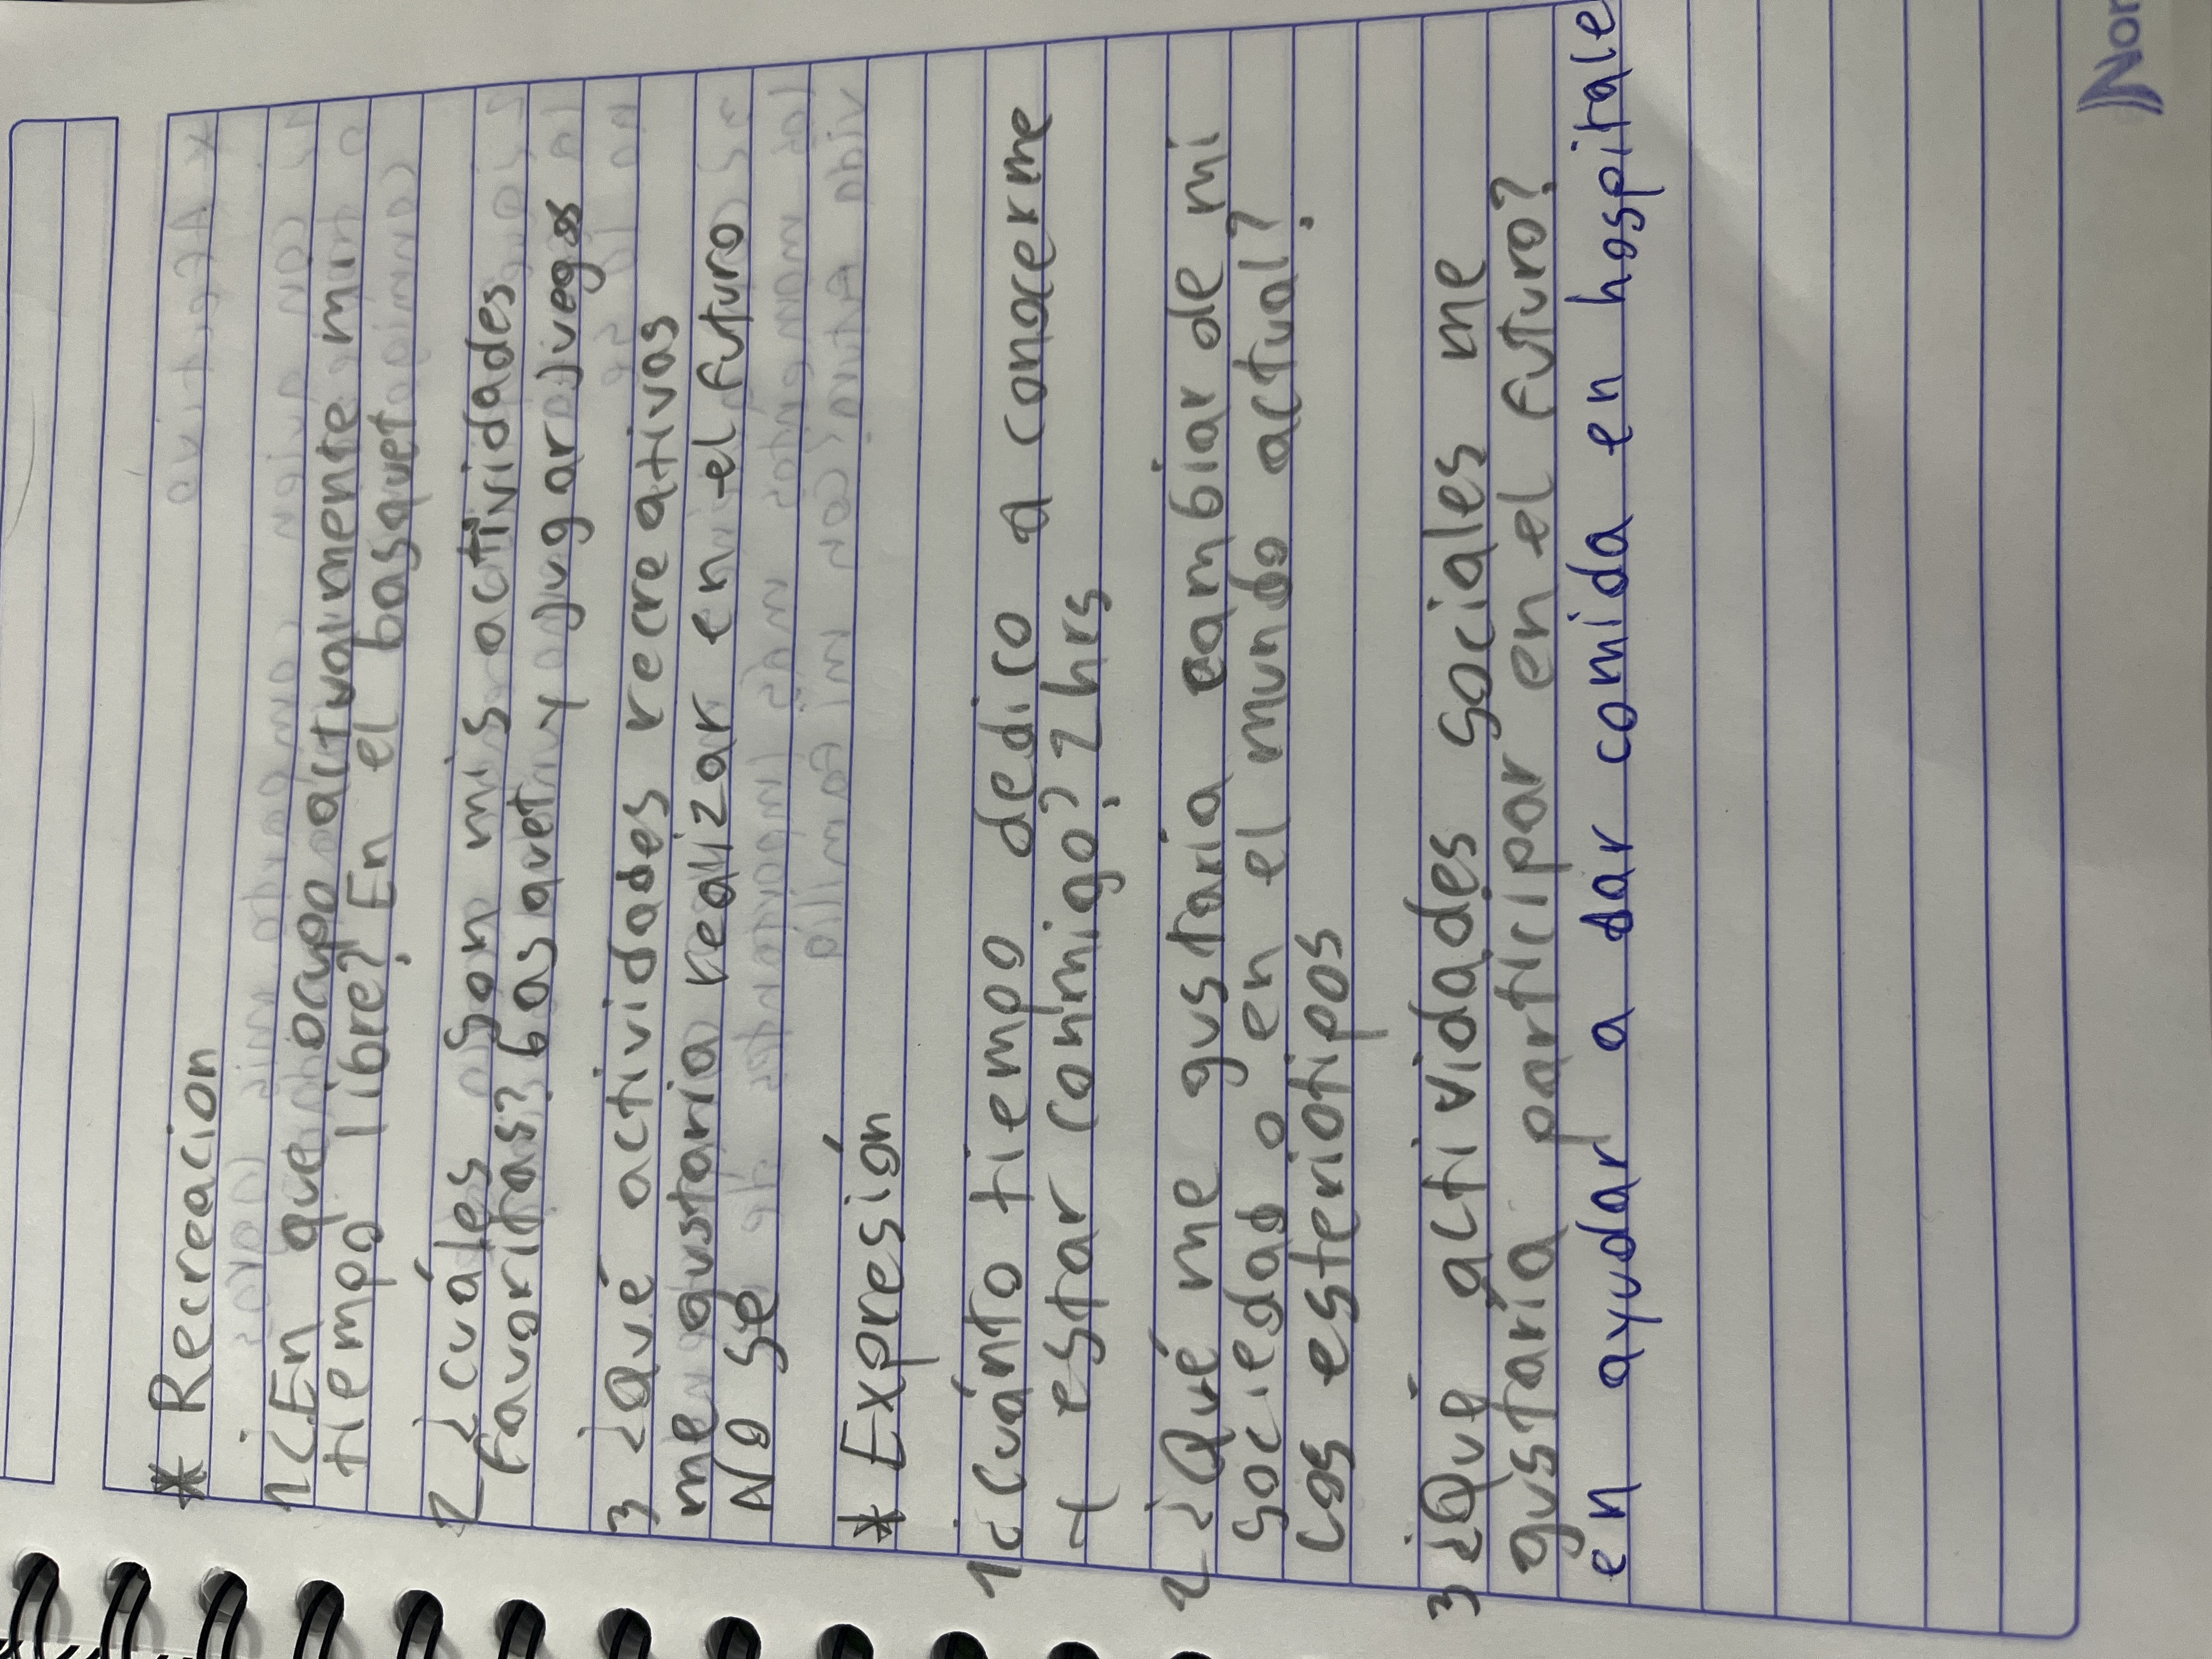 * Recreacion
1 ¿En que ocupo actualmente mi
tiempo libre? En el basquet
2 ¿cuáles son mis actividades
favoritas? basquet y jugar juegos
3 ¿Qué actividades recreativas
me gustaria realizar en el futuro
No sé
* Expresión
1 ¿Cuánto tiempo dedico a conocerme
y estar conmigo? 2 hrs
2 ¿Qué me gustaria cambiar de mi
sociedad o en el mundo actual?
Los esteriotipos
3 ¿Qué actividades sociales me
gustaría participar en el futuro?
en ayudar a dar comida en hospitale
Nor